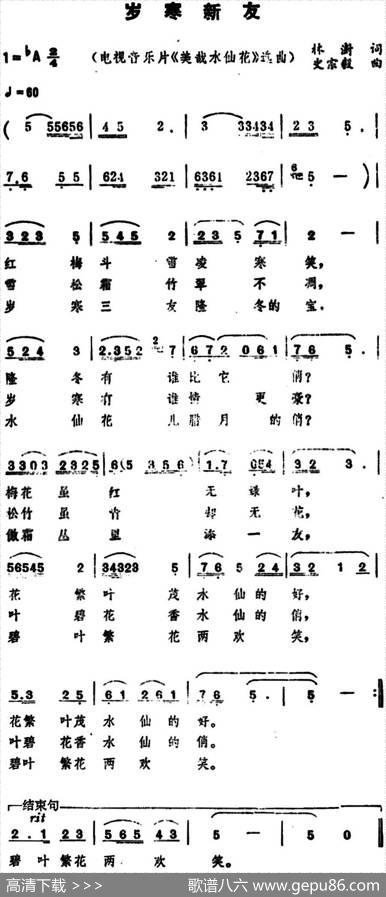 岁寒新友
1=♭A 2/4 （电视音乐片《美哉水仙花》选曲） 林澍 词
史宗毅 曲
♩=60
( 5 55656 | 4 5 2. | 3 33434 | 2 3 5. |
7.6 5 5 | 624 321 | 6361 2367 | 6 5 — ) |
3 2 3 5 | 5 4 5 2 | 2 3 5 7 1 | 2 — |
红梅斗雪凌寒笑，
雪松霜竹翠不凋，
岁寒三友隆冬的宝，
5 2 4 3 | 2.352 2 7 | 6 7 2 0 6 1 | 7 6 5. |
隆冬有谁比它俏？
岁寒有谁情更豪？
水仙花儿腊月的俏？
3303 2325 | 6 (5 3 5 6) | 1.7 054 | 3 2 3. |
梅花虽红无绿叶，
松竹虽青却无花，
傲霜丛里添一友，
56545 2 | 34323 5 | 7 6 5 2 4 | 3 2 1 2 |
花繁叶茂水仙的好，
叶碧花香水仙的俏，
碧叶繁花两欢笑，
5.3 2 5 | 6 1 2 6 1 | 7 6 5. | 5 — :||
花繁叶茂水仙的好。
叶碧花香水仙的俏。
碧叶繁花两欢笑。
结束句
rit
2.1 2 3 | 5 6 5 4 3 | 5 — | 5 0 ||
碧叶繁花两欢笑。
高清下载 >>> 歌谱八六 www.gepu86.com